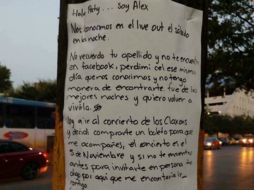 Hola Paty.... Soy Alex
Nos conocimos en el live out el sábado
en la noche.
No recuerdo tu apellido y no te encuentro
en facebook, perdí mi cel ese mismo
día que nos conocimos y no tengo
manera de encontrarte, fue de las
mejores noches y quiero volver a
vivirla.
Voy a ir al concierto de los Claxons
y decidí comprarte un boleto para que
me acompañes, el concierto es el
5 de Noviembre y si no te encuentro
antes para decirte
dejo aquí que me encantaría ir
contigo